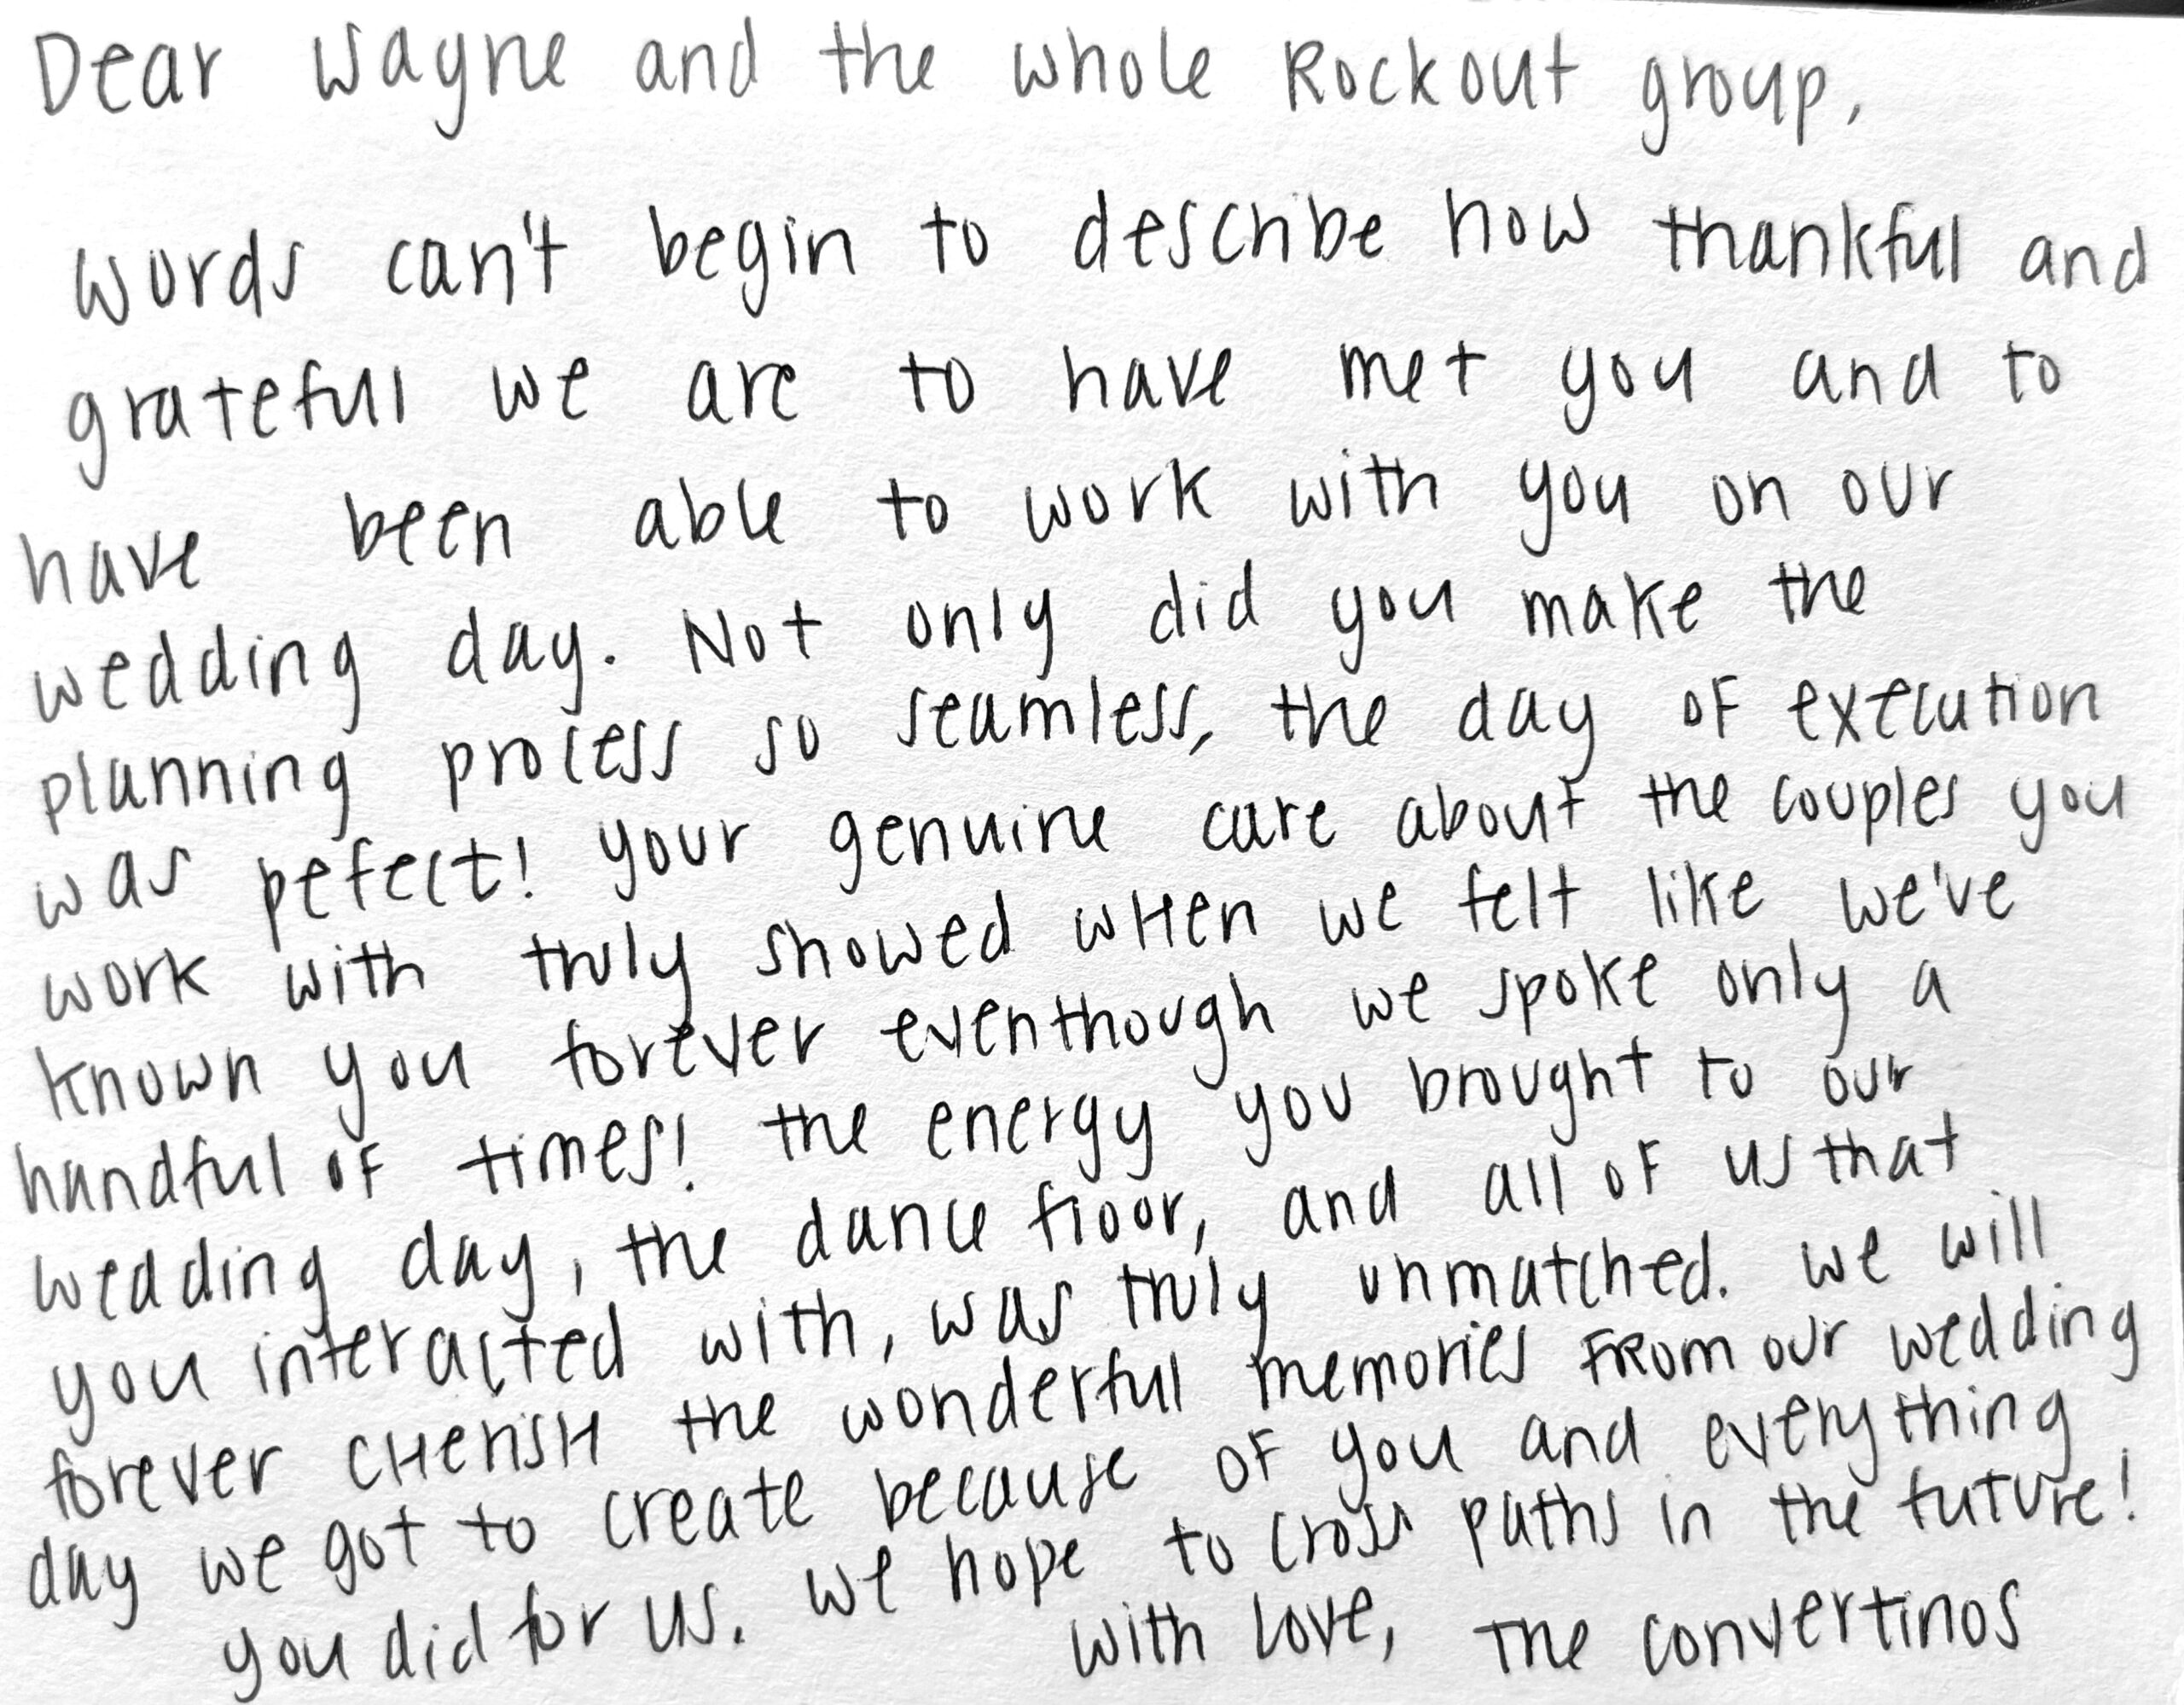 Dear Wayne and the whole Rockout group,
Words can't begin to describe how thankful and
grateful we are to have met you and to
have been able to work with you on our
wedding day. Not only did you make the
planning process so seamless, the day of execution
was pefect! Your genuine care about the couples you
work with truly showed when we felt like we've
known you forever eventhough we spoke only a
handful of times! The energy you brought to our
wedding day, the dance floor, and all of us that
you interacted with, was truly unmatched. We will
forever cherish the wonderful memories from our wedding
day we got to create because of you and everything
you did for us. We hope to cross paths in the future!
With love, The Convertinos